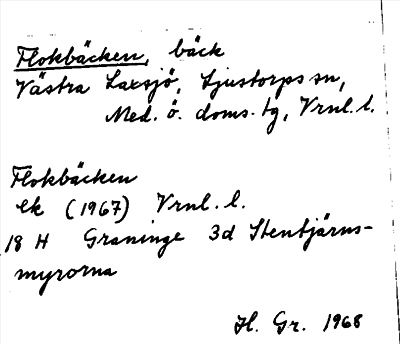 Flokbäcken, bäck
Västra Laxsjö, Ljustorps sn,
Med. ö. doms. tg, Vrnl. l.
Flokbäcken
ek (1967) Vrnl. l.
18 H Graninge 3d Stentjärns-
myrorna
H. Gr. 1968